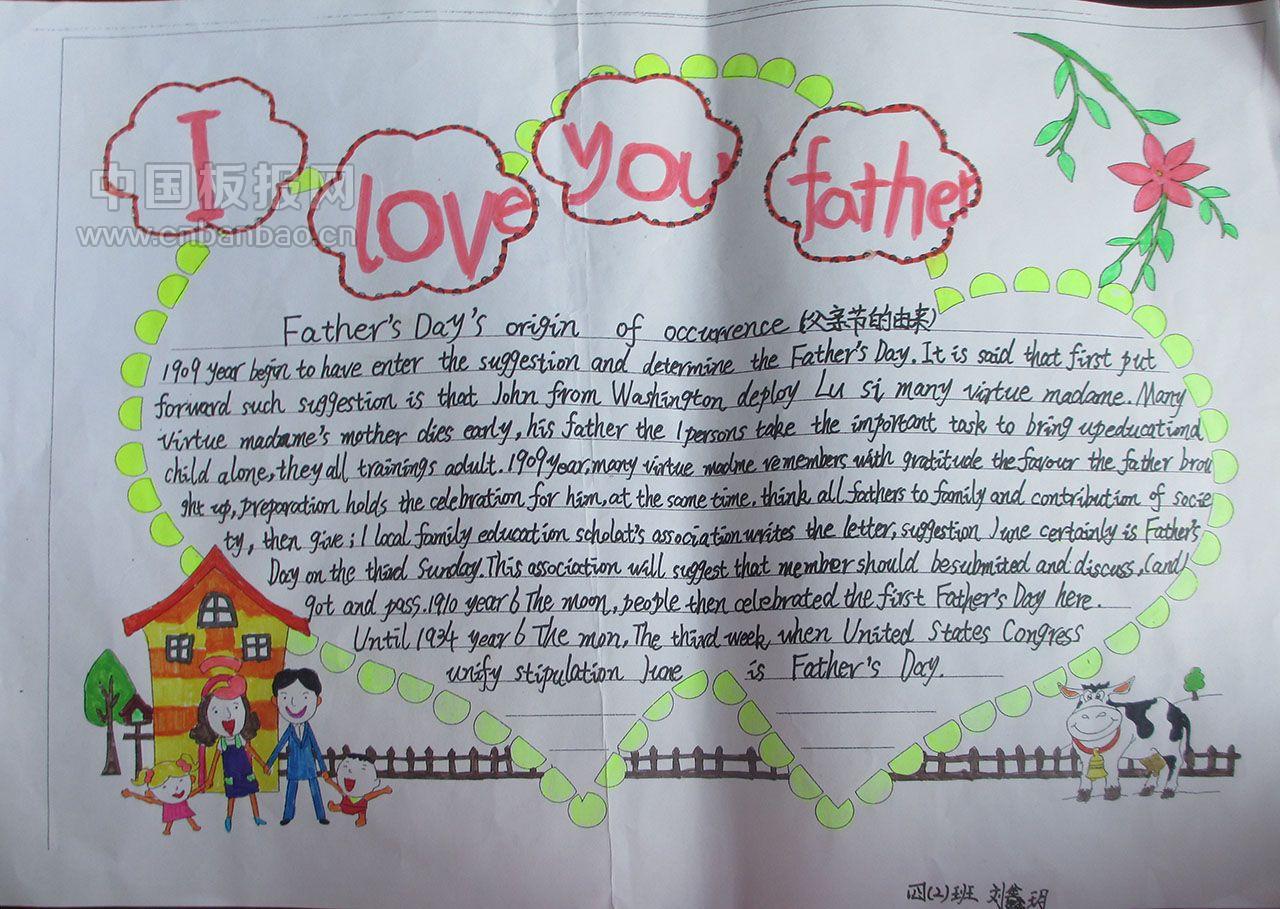 I love you father
中国板报网
www.cnbanbao.cn
Father's Day's origin of occurrence (父亲节的由来)
1909 year begin to have enter the suggestion and determine the Father's Day. It is said that first put
forward such suggestion is that John from Washington deploy Lu si many virtue madame. Many
virtue madame's mother dies early, his father the 1persons take the important task to bring upeducationd
child alone, they all trainings adult. 1909 year, many virtue madme remembers with gratitude the favour the father brou
ght up, preparation holds the celebration for him, at the same time, think all fathers to family and contribution of socie
ty, then give; 1 local family education scholat's association writes the letter, suggestion June certainly is Father's
Day on the third Sunday. This association will suggest that member should be submited and discuss, (and)
got and pass. 1910 year 6 The moon, people then celebrated the first Father's Day here.
Until 1934 year 6 The mon, The third week, when United States Congress
unify stipulation June is Father's Day.
四(2)班 刘鑫玥